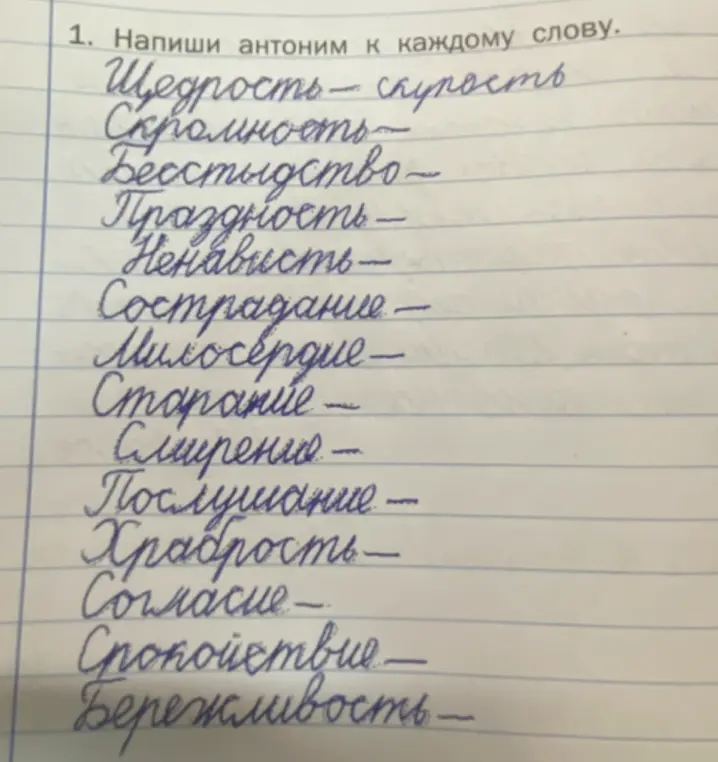 1. Напиши антоним к каждому слову.
Щедрость – скупость
Скромность –
Бесстыдство –
Праздность –
Ненависть –
Сострадание –
Милосердие –
Старание –
Смирение –
Послушание –
Храбрость –
Согласие –
Спокойствие –
Бережливость –